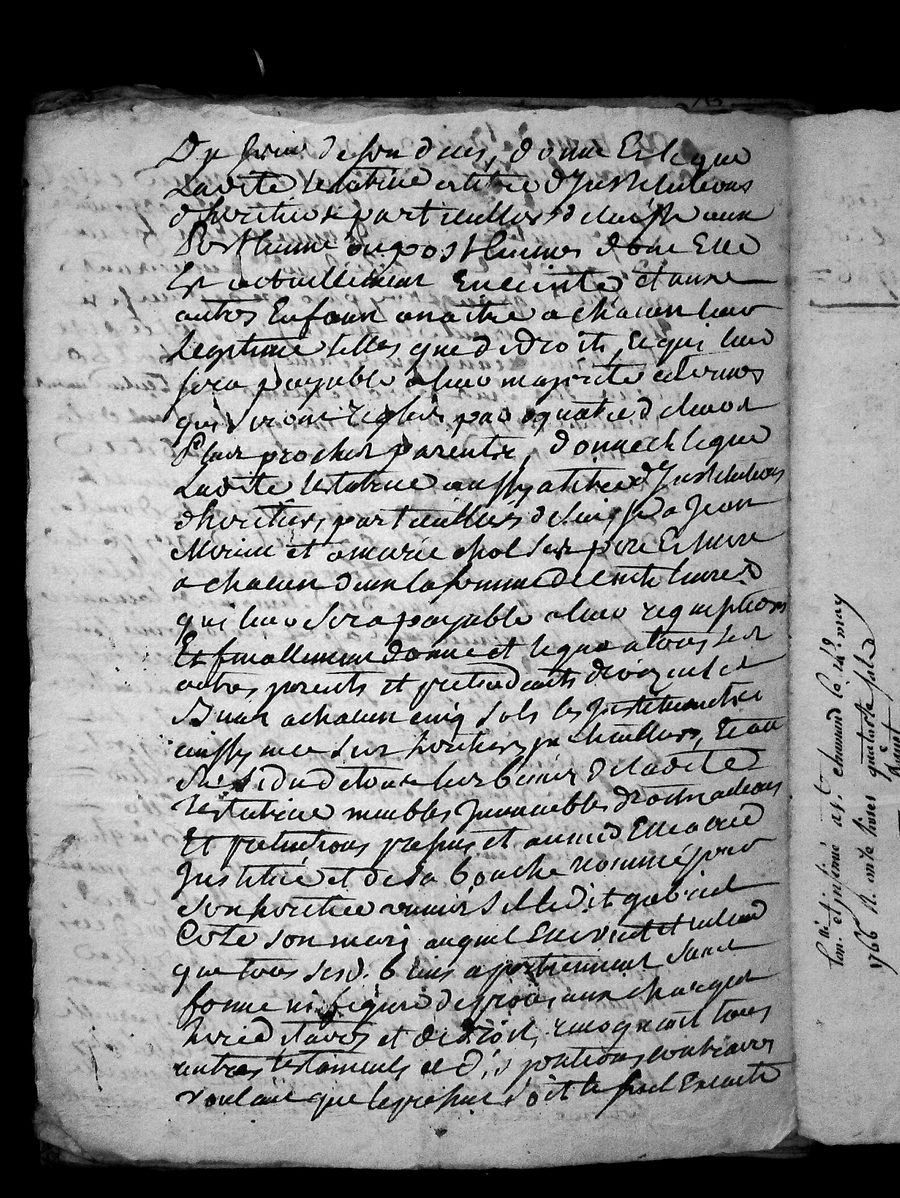 de son deces, donne Et legue
Laditte testatrice a titre d'Institutions
d'heritiers particulliers delaisse aux
Posthume ou posthumes dont Elle
Est actuellement Enceinte et aux
autres Enfans a naitre a chacun leur
Legitime telles que de droit, Et qui leur
sera payable a leur majorité a termes
qui seront regles par quatre de leurs
Plus proches parents, donne Et legue
Laditte testatrice aussy a titre d'Institutions
d'heritiers particulliers delaisse a Jean
et a marie chol ses pere Et mere
a chacun deux la somme de livres
qui leur sera payable a leur requisitions
Et finallement donne et legue a tous ses
autres parents et pretendants droits en ses
Biens a chacun cinq sols les Instituants
aussy mes ses heritiers particulliers, Et au
Residu de tous les biens de laditte
testatrice meubles Immeubles droits actions
Et pretentions presens et avenir Elle a crée
Institué et de sa bouche nommé pour
son heritier universel ledit gabriel
Cote son mary auquel Elle veut et entend
que tous sesd. biens apartiennent sans
forme ni figure de proces aux charges
hereditaires et de droit, revoquant tous
autres testaments et dispositions contraires
voulant que le present soit le seul Execute
et insinué a St chamond le 14e may
1766 R. onze livres quatorze sols